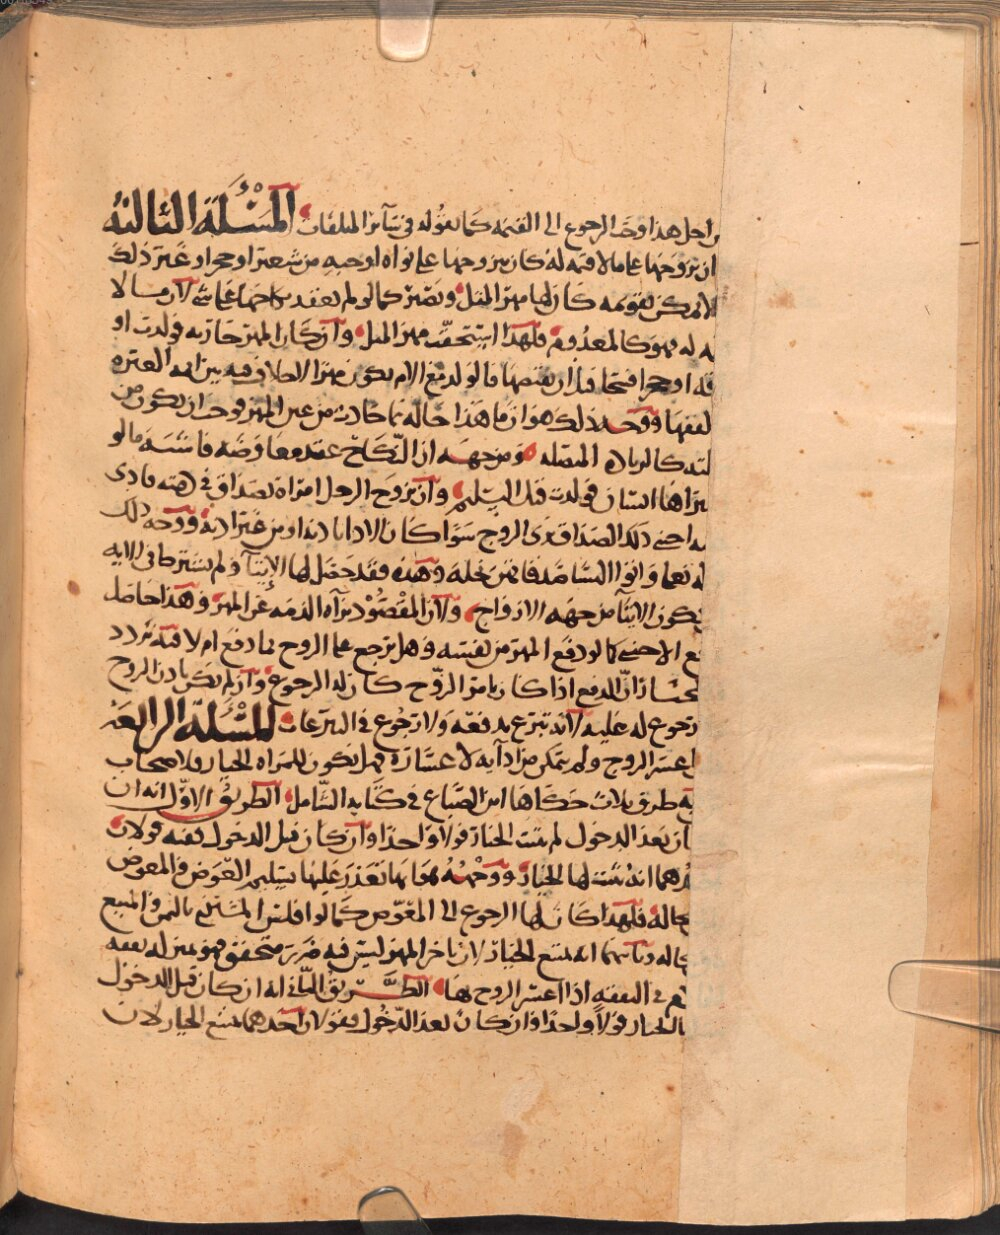 اجل هذا وجب الرجوع الى القيمه كما نقوله في سائر المتلفات المسئلة الثالثه
ان تزوجها على ما لا قيمه له كان يتزوجها على نواه او حبه من شعير او حجر او غير ذلك
لا يمكن تقويمه كان لها مهر المثل وتصير كما لو لم يعقد نكاحها على شي لان ما لا
له فهو كالمعدوم فلهذا استحقت مهر المثل وان كان المهر جاريه فولدت او
او حجرا فقبل ان يقبضها فالولد مع الام يكون مهرا لا خلاف فيه بين ائمه العتره
ووجه ذلك هو ان ما هذا حاله نما حادث من عين المهر فوجب ان يكون من
كالزياده المتصله ومن جهه ان النكاح عقد معاوضه فاشبه ما لو
انسان فولدت قبل التسليم وان تزوج الرجل امراة بصداق في ذمته فادى
اجنبي ذلك الصداق برى الزوج سوا كان الادا باذنه او من غير اذنه ووجه ذلك
واتوا النسا صدقاتهن نحله وهذه فقد حصل لها الايتا ولم يشترط في الايه
يكون الايتا من جهه الازواج ولان المقصود براه الذمه عن المهر وهذا حاصل
الاجنبي كما لو دفع المهر من نفسه وهل يرجع على الزوج بما دفع ام لا فيه تردد
ان الدفع اذا كان بامر الزوج كان له الرجوع وان لم يكن باذن الزوج
رجوع له عليه لانه تبرع بدفعه ولا رجوع في التبرعات المسئلة الرابعه
اعسر الزوج ولم يتمكن من ادايه لاعساره فهل يكون للمراه الخيار فلاصحاب
طرق ثلاث حكاها ابن الصباغ في كتابه الشامل الطريق الاول انه ان
كان بعد الدخول لم يثبت الخيار قولا واحدا وان كان قبل الدخول ففيه قولان
احدهما انه يثبت لها الخيار ووجهه هو انها تعذر عليها تسليم العوض والمعوض
بحاله فلهذا كان لها الرجوع الى المعوض كما لو افلس المشتري بالثمن والمبيع
بحاله وثانيهما انه يمتنع الخيار لان تاخر المهر ليس فيه ضرر متحقق فهو بمنزله نفقه
في النفقه اذا اعسر الزوج بها الطريق الثاني انه ان كان قبل الدخول
الخيار قولا واحدا وان كان بعد الدخول فقولان احدهما يمتنع الخيار لان